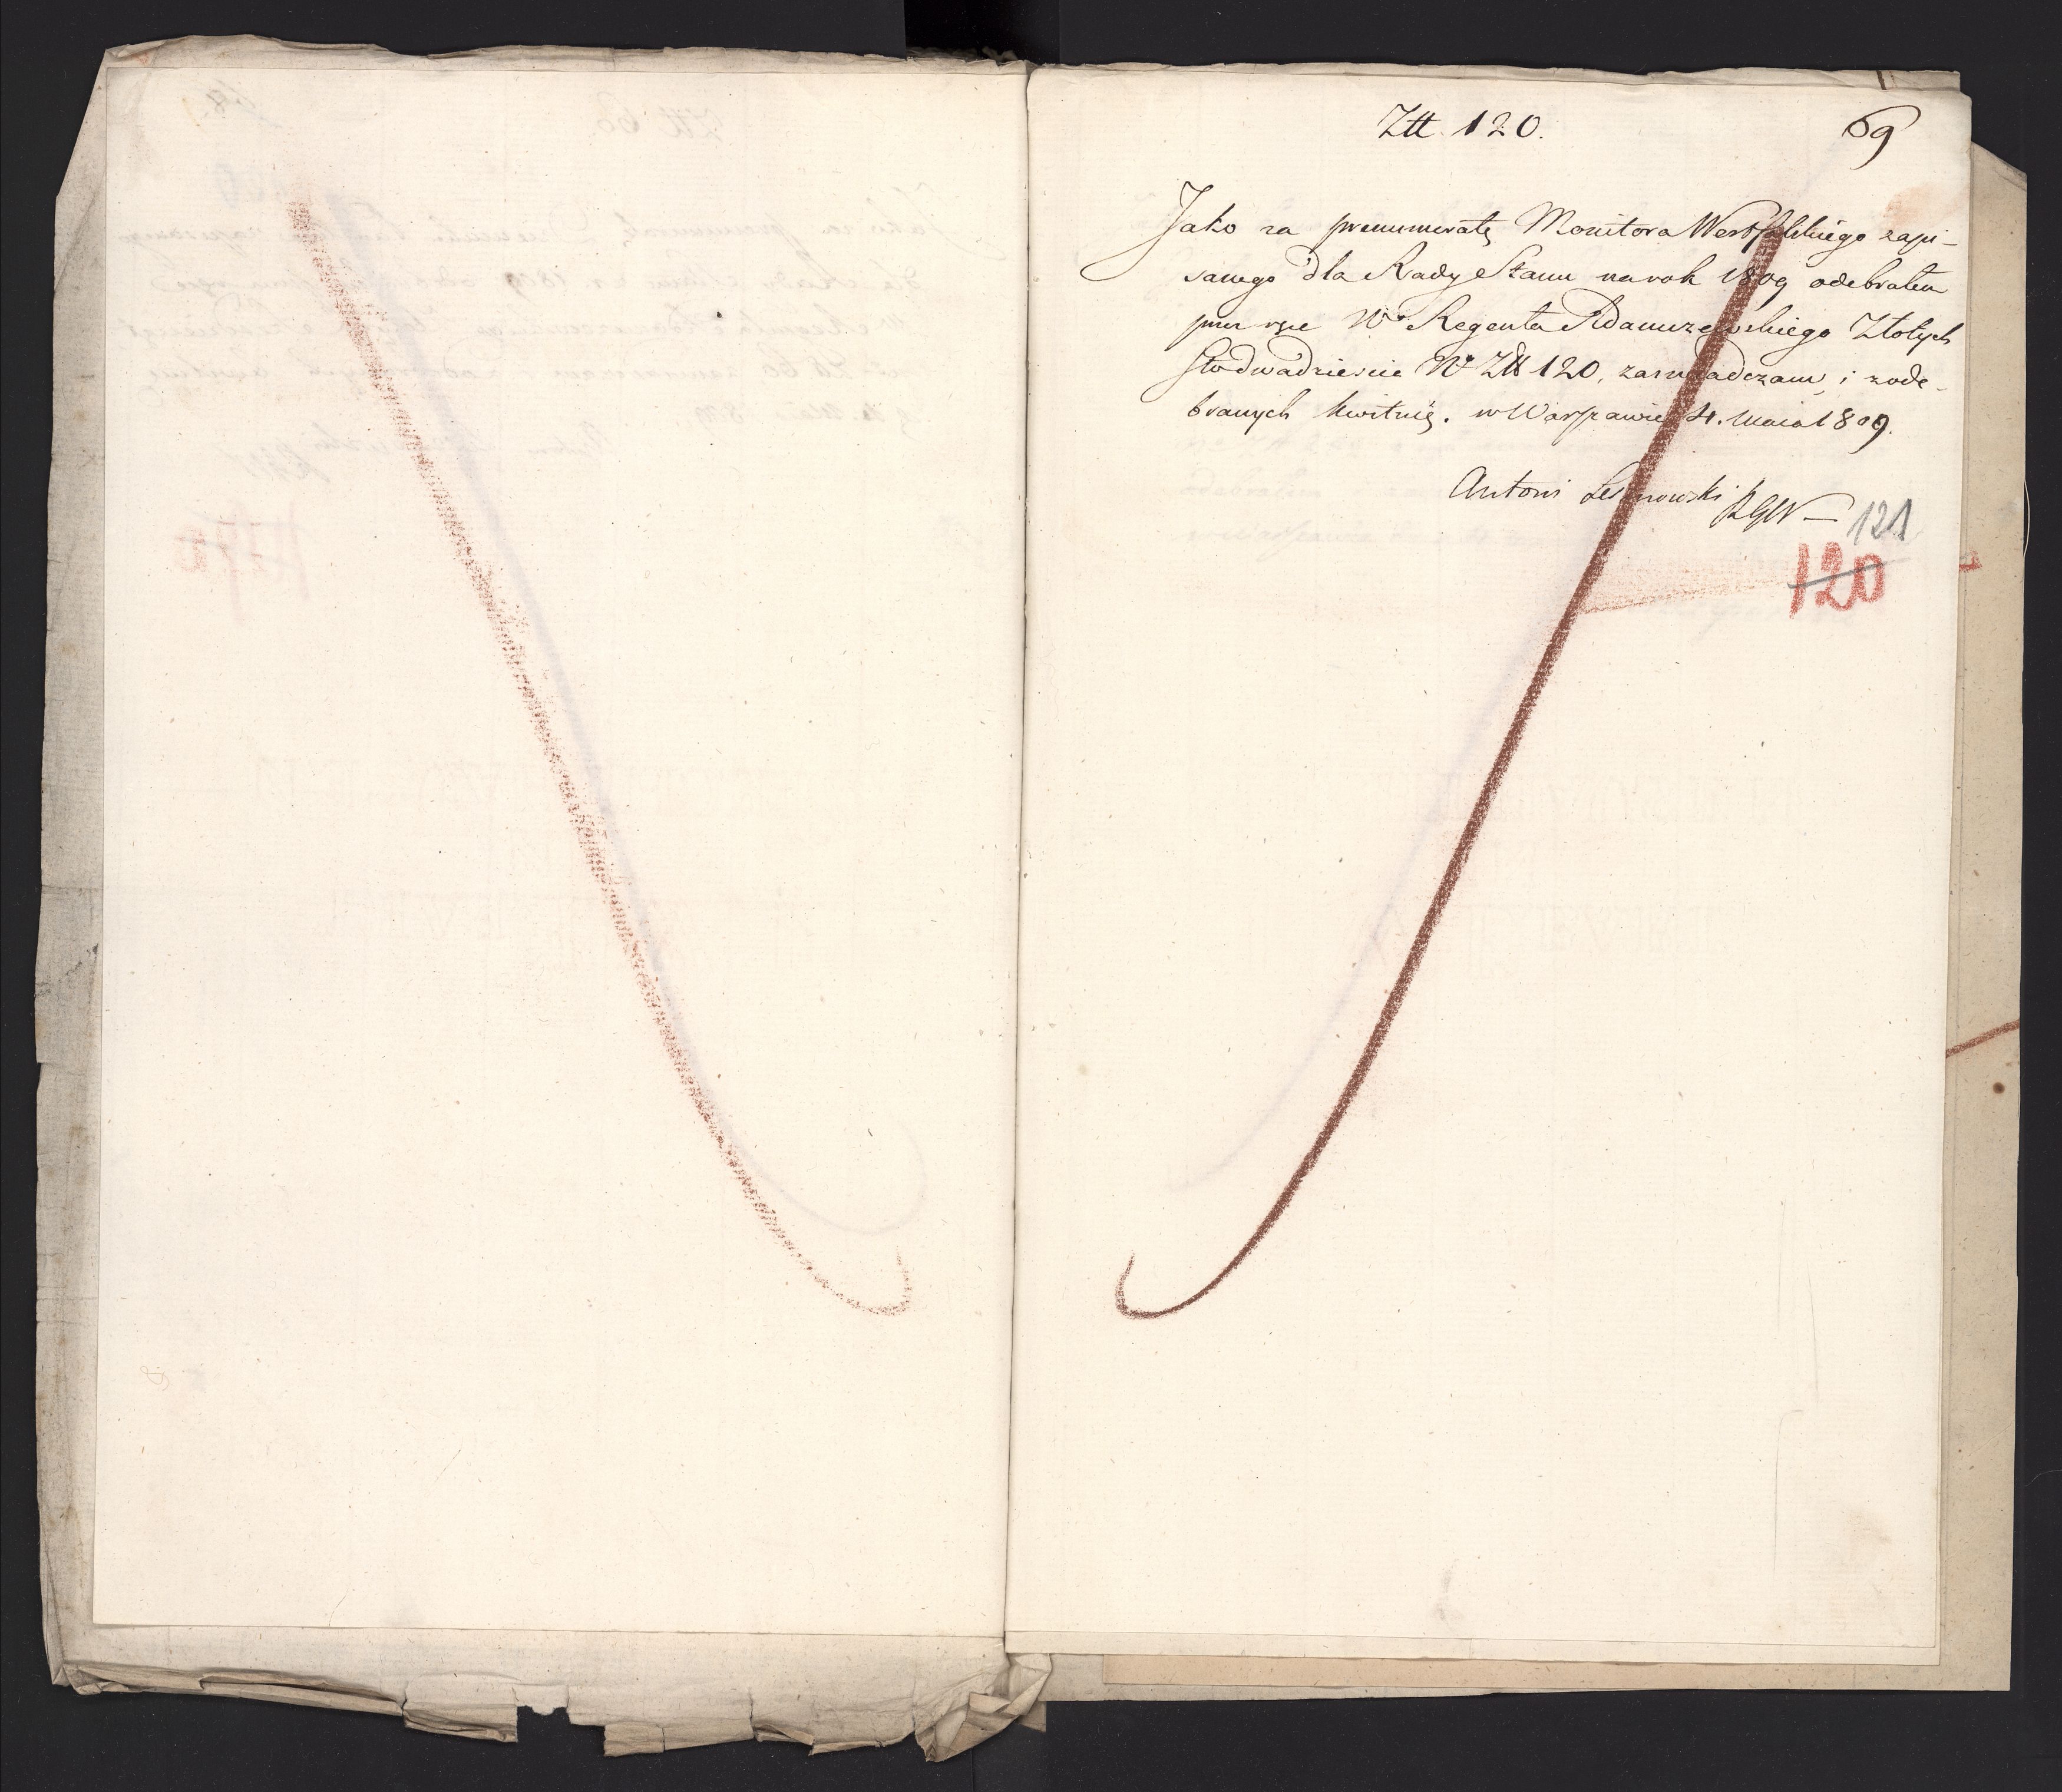 Ztt. 120.
69
Jako za prenumeratę Monitora Westfalskiego zapi-
sanego dla Rady Stanu na rok 1809 odebrałem
przez ręce Regenta Adamczewskiego Złotych
Stodwadzieścia Nr Ztt 120, zaswiadczam, i z ode-
branych kwituię. w Warszawie 4. Maia 1809.
Antoni Lesznowski
121
120